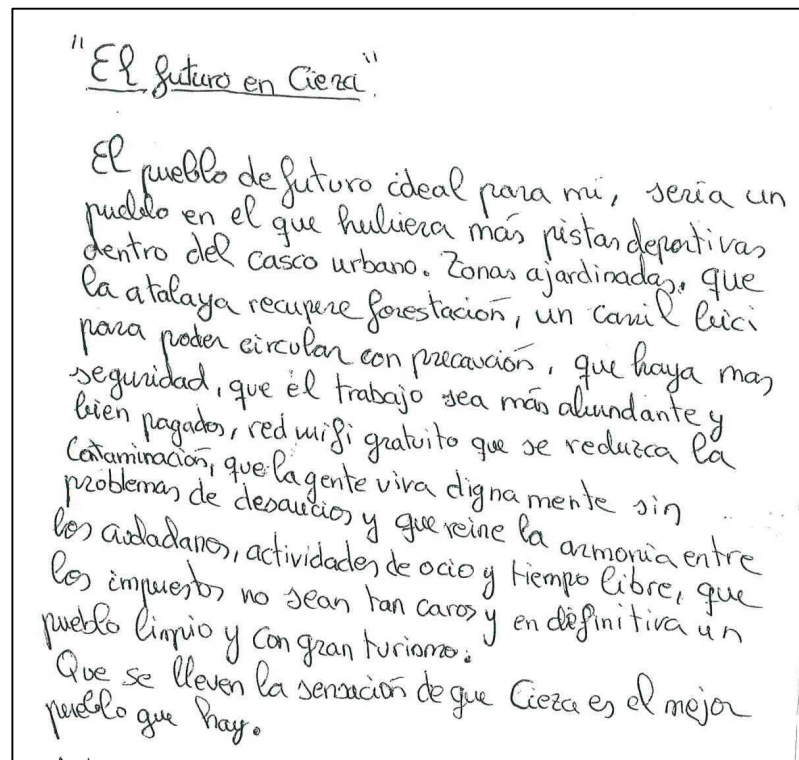 "El futuro en Cieza".
El pueblo de futuro ideal para mi, seria un
pueblo en el que hubiera más pistas deportivas
dentro del casco urbano. Zonas ajardinadas, que
la atalaya recupere forestación, un carril bici
para poder circular con precaución, que haya mas
seguridad, que el trabajo sea más abundante y
bien pagados, red wifi gratuito que se reduzca la
contaminación, que la gente viva dignamente sin
problemas de desaucios y que reine la armonia entre
los ciudadanos, actividades de ocio y tiempo libre, que
los impuestos no sean tan caros y en definitiva un
pueblo limpio y con gran turismo.
Que se lleven la sensación de que Cieza es el mejor
pueblo que hay.